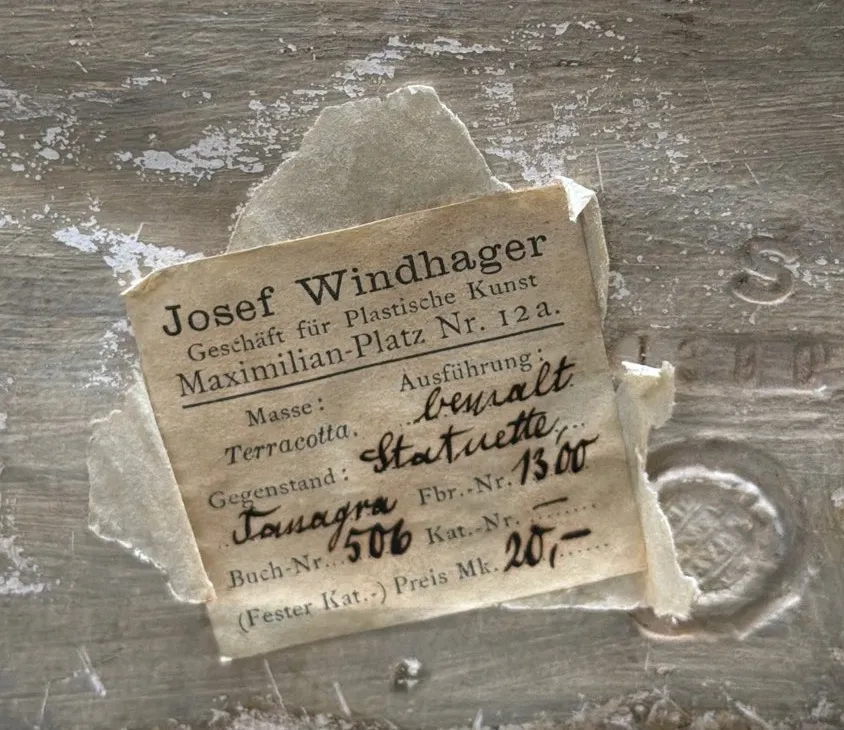 Josef Windhager
Geschäft für Plastische Kunst
Maximilian-Platz Nr. 12a.
Masse: Ausführung:
Terracotta. bemalt
Gegenstand: Statuette,
Tanagra Fbr.-Nr. 1300
Buch-Nr. 506 Kat.-Nr. —
(Fester Kat.-) Preis Mk. 20,—
S